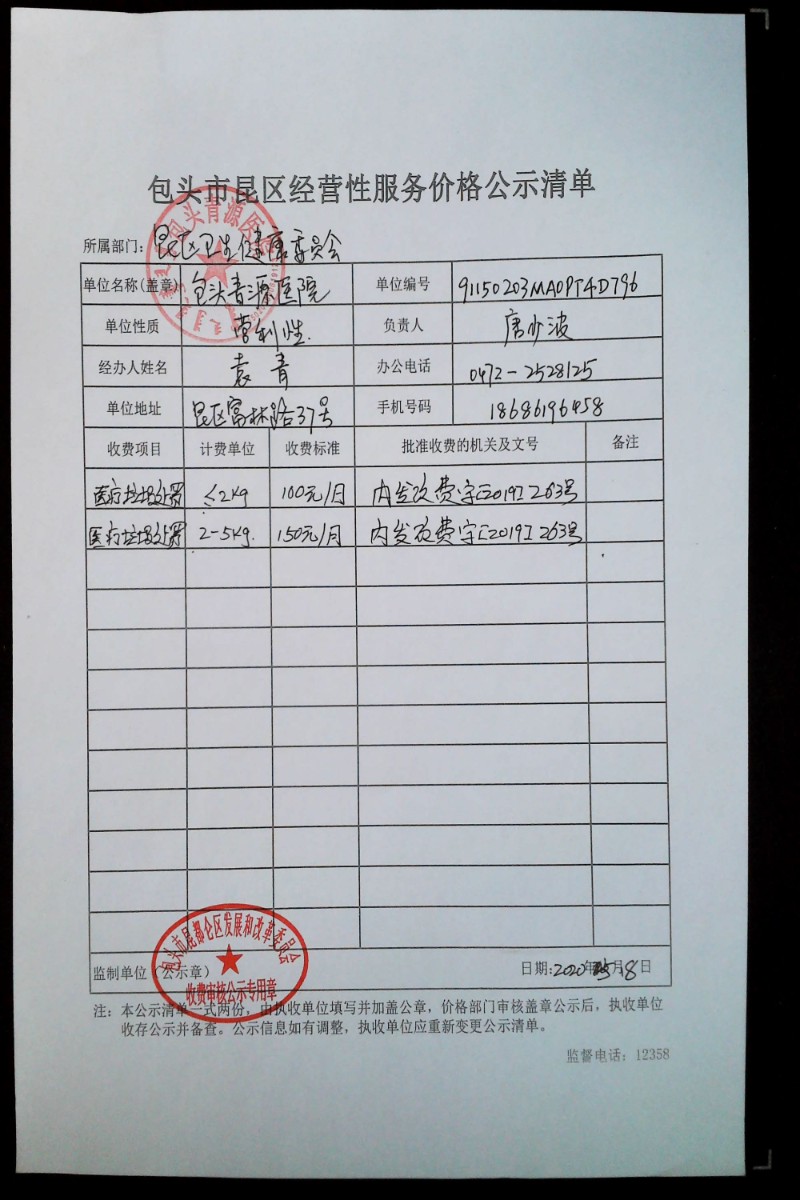 包头市昆区经营性服务价格公示清单
所属部门：昆区卫生健康委员会
单位名称(盖章) 包头青源医院 单位编号 91150203MA0PT4D796
单位性质 营利性. 负责人 唐少波
经办人姓名 袁青 办公电话 0472-2528125
单位地址 昆区富林路37号 手机号码 18686196458
收费项目 计费单位 收费标准 批准收费的机关及文号 备注
医疗垃圾处置 ≤2kg 100元/月 内发改费字[2019]263号
医疗垃圾处置 2-5kg. 150元/月 内发改费字[2019]263号
包头市昆都仑区发展和改革委员会
收费审核公示专用章
监制单位（公示章） 日期:2020年5月8日
注：本公示清单一式两份，由执收单位填写并加盖公章，价格部门审核盖章公示后，执收单位
收存公示并备查。公示信息如有调整，执收单位应重新变更公示清单。
监督电话：12358